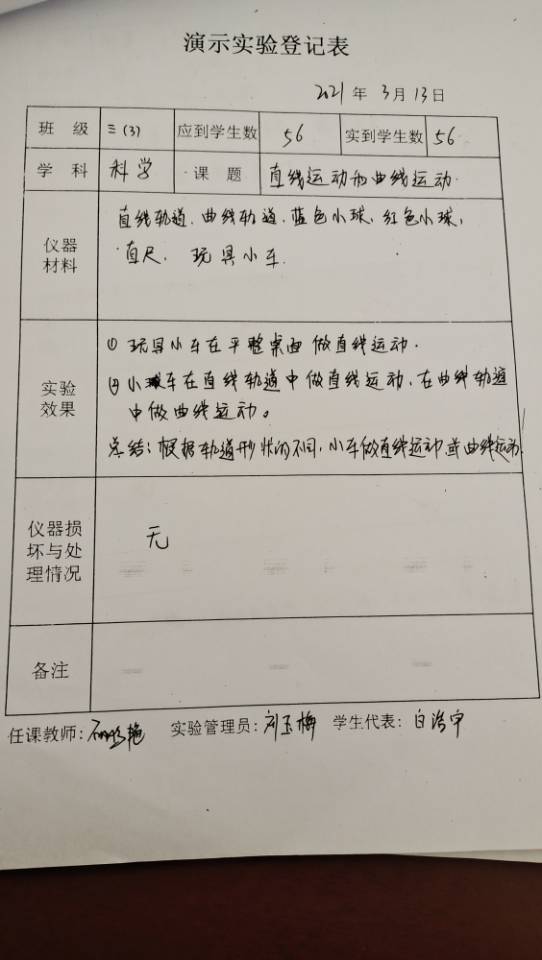 演示实验登记表
2021年3月13日
班级 三(3) 应到学生数 56 实到学生数 56
学科 科学 课题 直线运动和曲线运动
仪器材料 直线轨道、曲线轨道、蓝色小球、红色小球、
直尺、玩具小车
实验效果 ①玩具小车在平整桌面做直线运动.
②小车在直线轨道中做直线运动,在曲线轨道
中做曲线运动。
总结:根据轨道形状的不同,小车做直线运动或曲线运动
仪器损坏与处理情况 无
备注
任课教师: 实验管理员:刘玉梅 学生代表:白浩宇